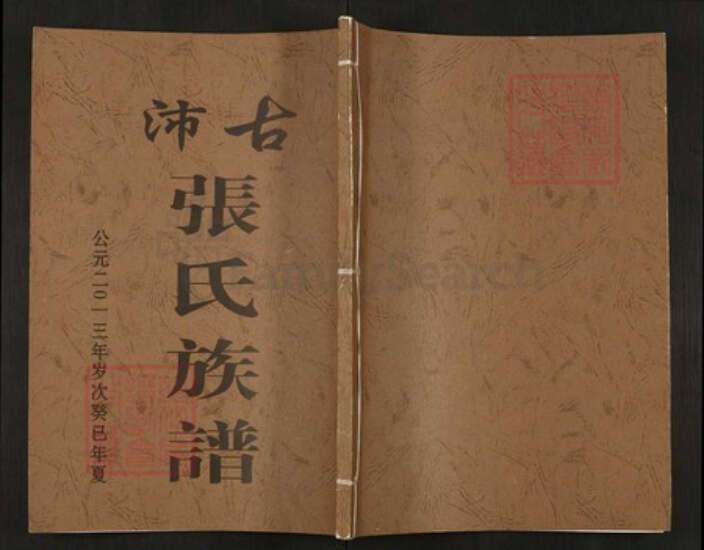 古沛
張氏族譜
公元二〇一三年岁次癸巳年夏
FamilySearch